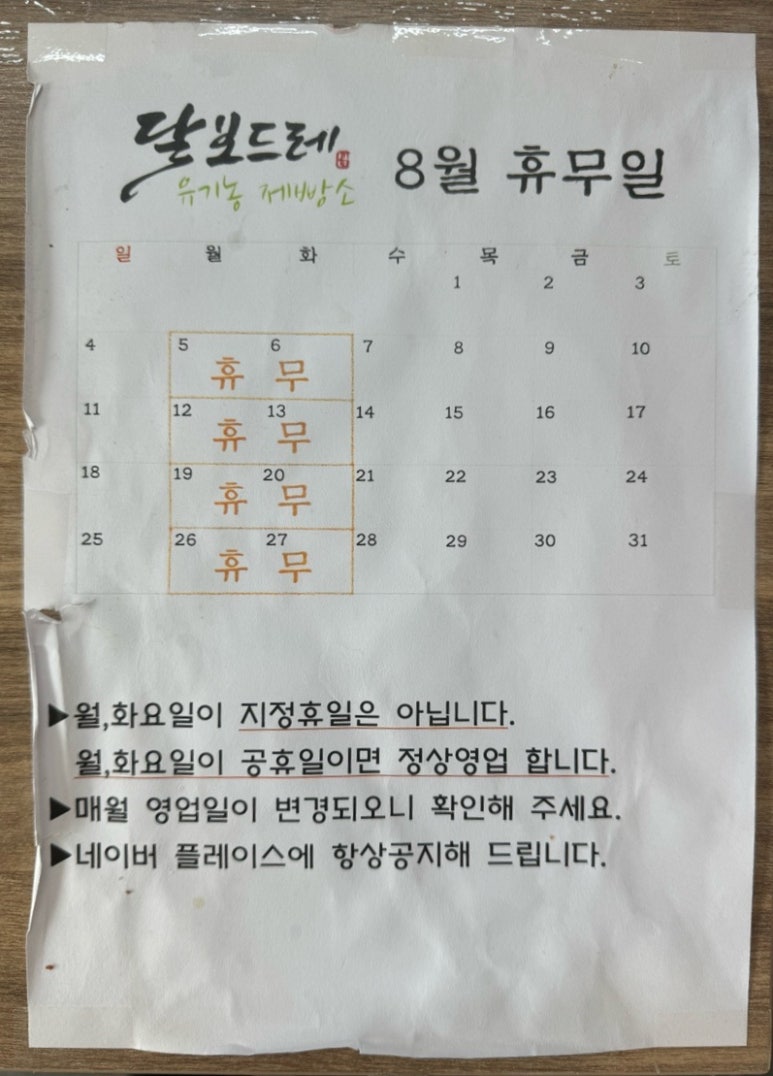 달보드레
유기농 제빵소
8월 휴무일
일 월 화 수 목 금 토
1 2 3
4 5 6 7 8 9 10
휴 무
11 12 13 14 15 16 17
휴 무
18 19 20 21 22 23 24
휴 무
25 26 27 28 29 30 31
휴 무
▶월,화요일이 지정휴일은 아닙니다.
월,화요일이 공휴일이면 정상영업 합니다.
▶매월 영업일이 변경되오니 확인해 주세요.
▶네이버 플레이스에 항상공지해 드립니다.